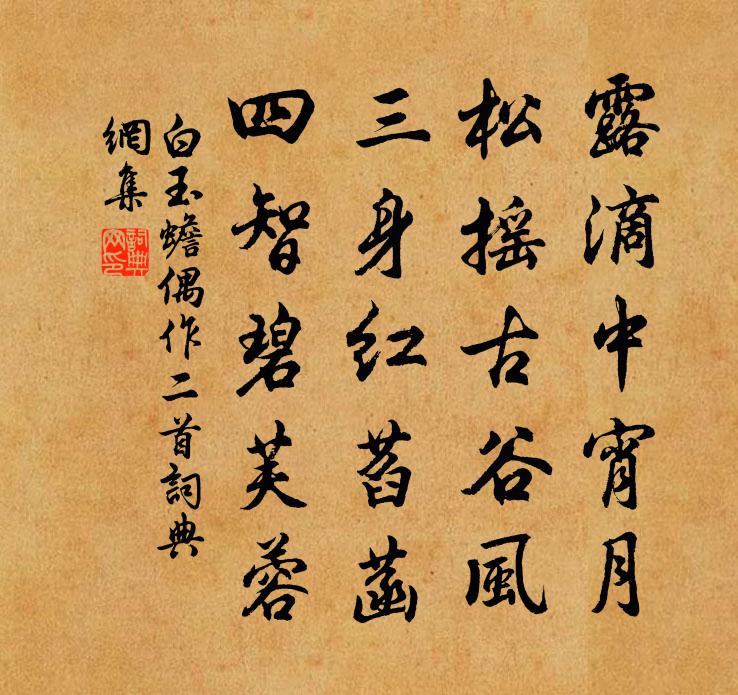 露滴中宵月
松摇古谷風
三身紅菡萏
四智碧芙蓉
白玉蟾偶作二首詞典
網集
詞典
网印